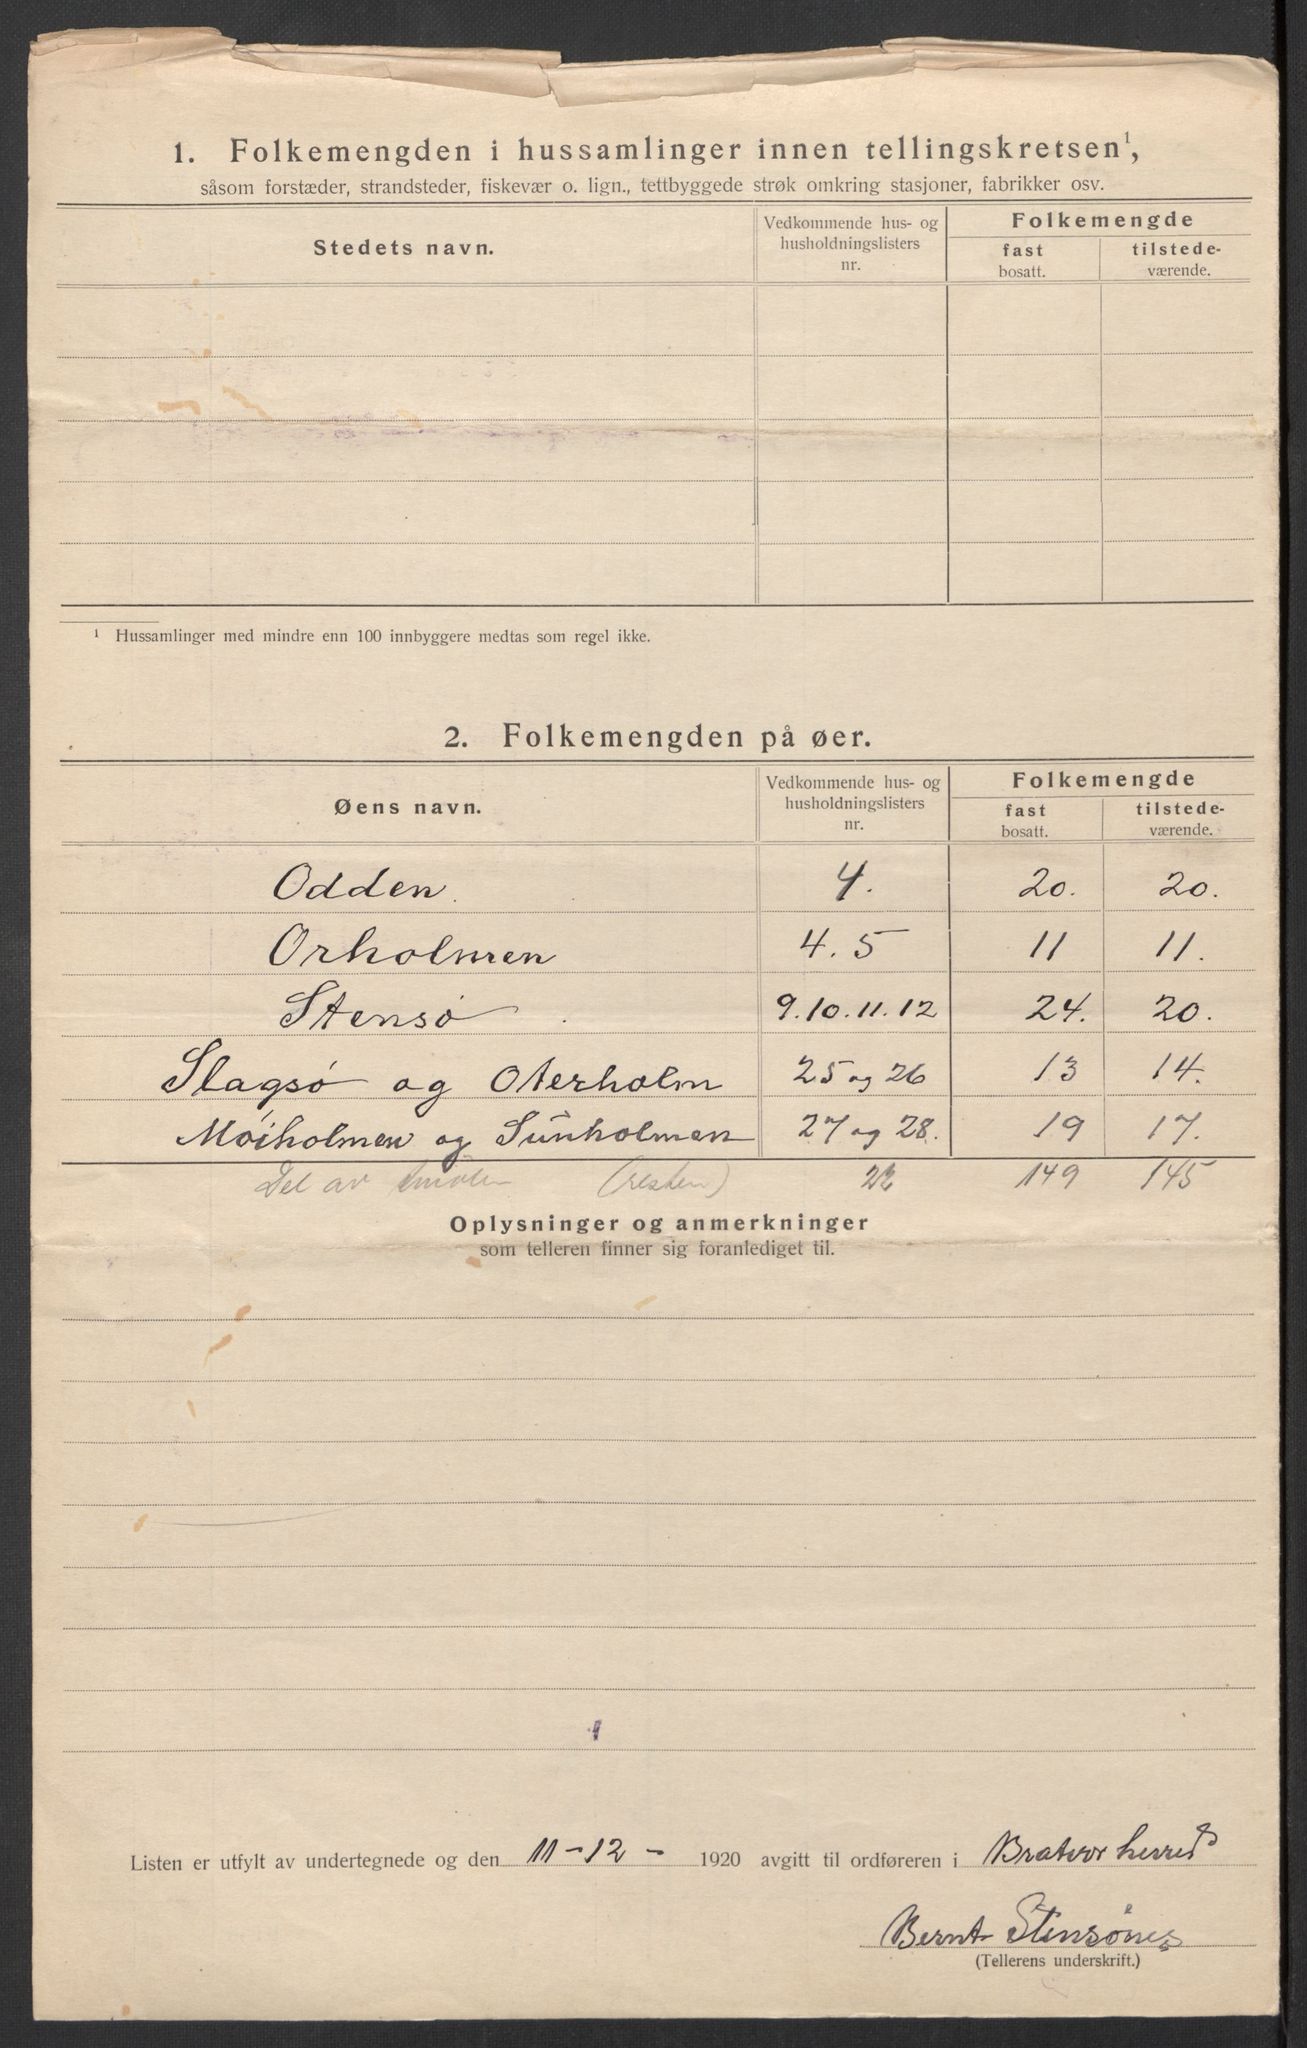 1. Folkemengden i hussamlinger innen tellingskretsen¹,
såsom forstæder, strandsteder, fiskevær o. lign., tettbyggede strøk omkring stasjoner, fabrikker osv.
Stedets navn.
Vedkommende hus- og husholdningslisters nr.
Folkemengde
fast bosatt.
tilstede-værende.
¹ Hussamlinger med mindre enn 100 innbyggere medtas som regel ikke.
2. Folkemengden på øer.
Øens navn.
Vedkommende hus- og husholdningslisters nr.
Folkemengde
fast bosatt.
tilstede-værende.
Odden. 4. 20. 20.
Orholmen 4. 5 11 11.
Stensø. 9. 10. 11. 12 24. 20.
Slagsø og Oterholm 25 og 26 13 14.
Moiholmen og Sunholmen 27 og 28. 19 17.
Del av Smölen (resten) 149 145
Oplysninger og anmerkninger
som telleren finner sig foranlediget til.
Listen er utfylt av undertegnede og den 11-12- 1920 avgitt til ordføreren i Bratvær herred
Bernt Stensönes
(Tellerens underskrift.)